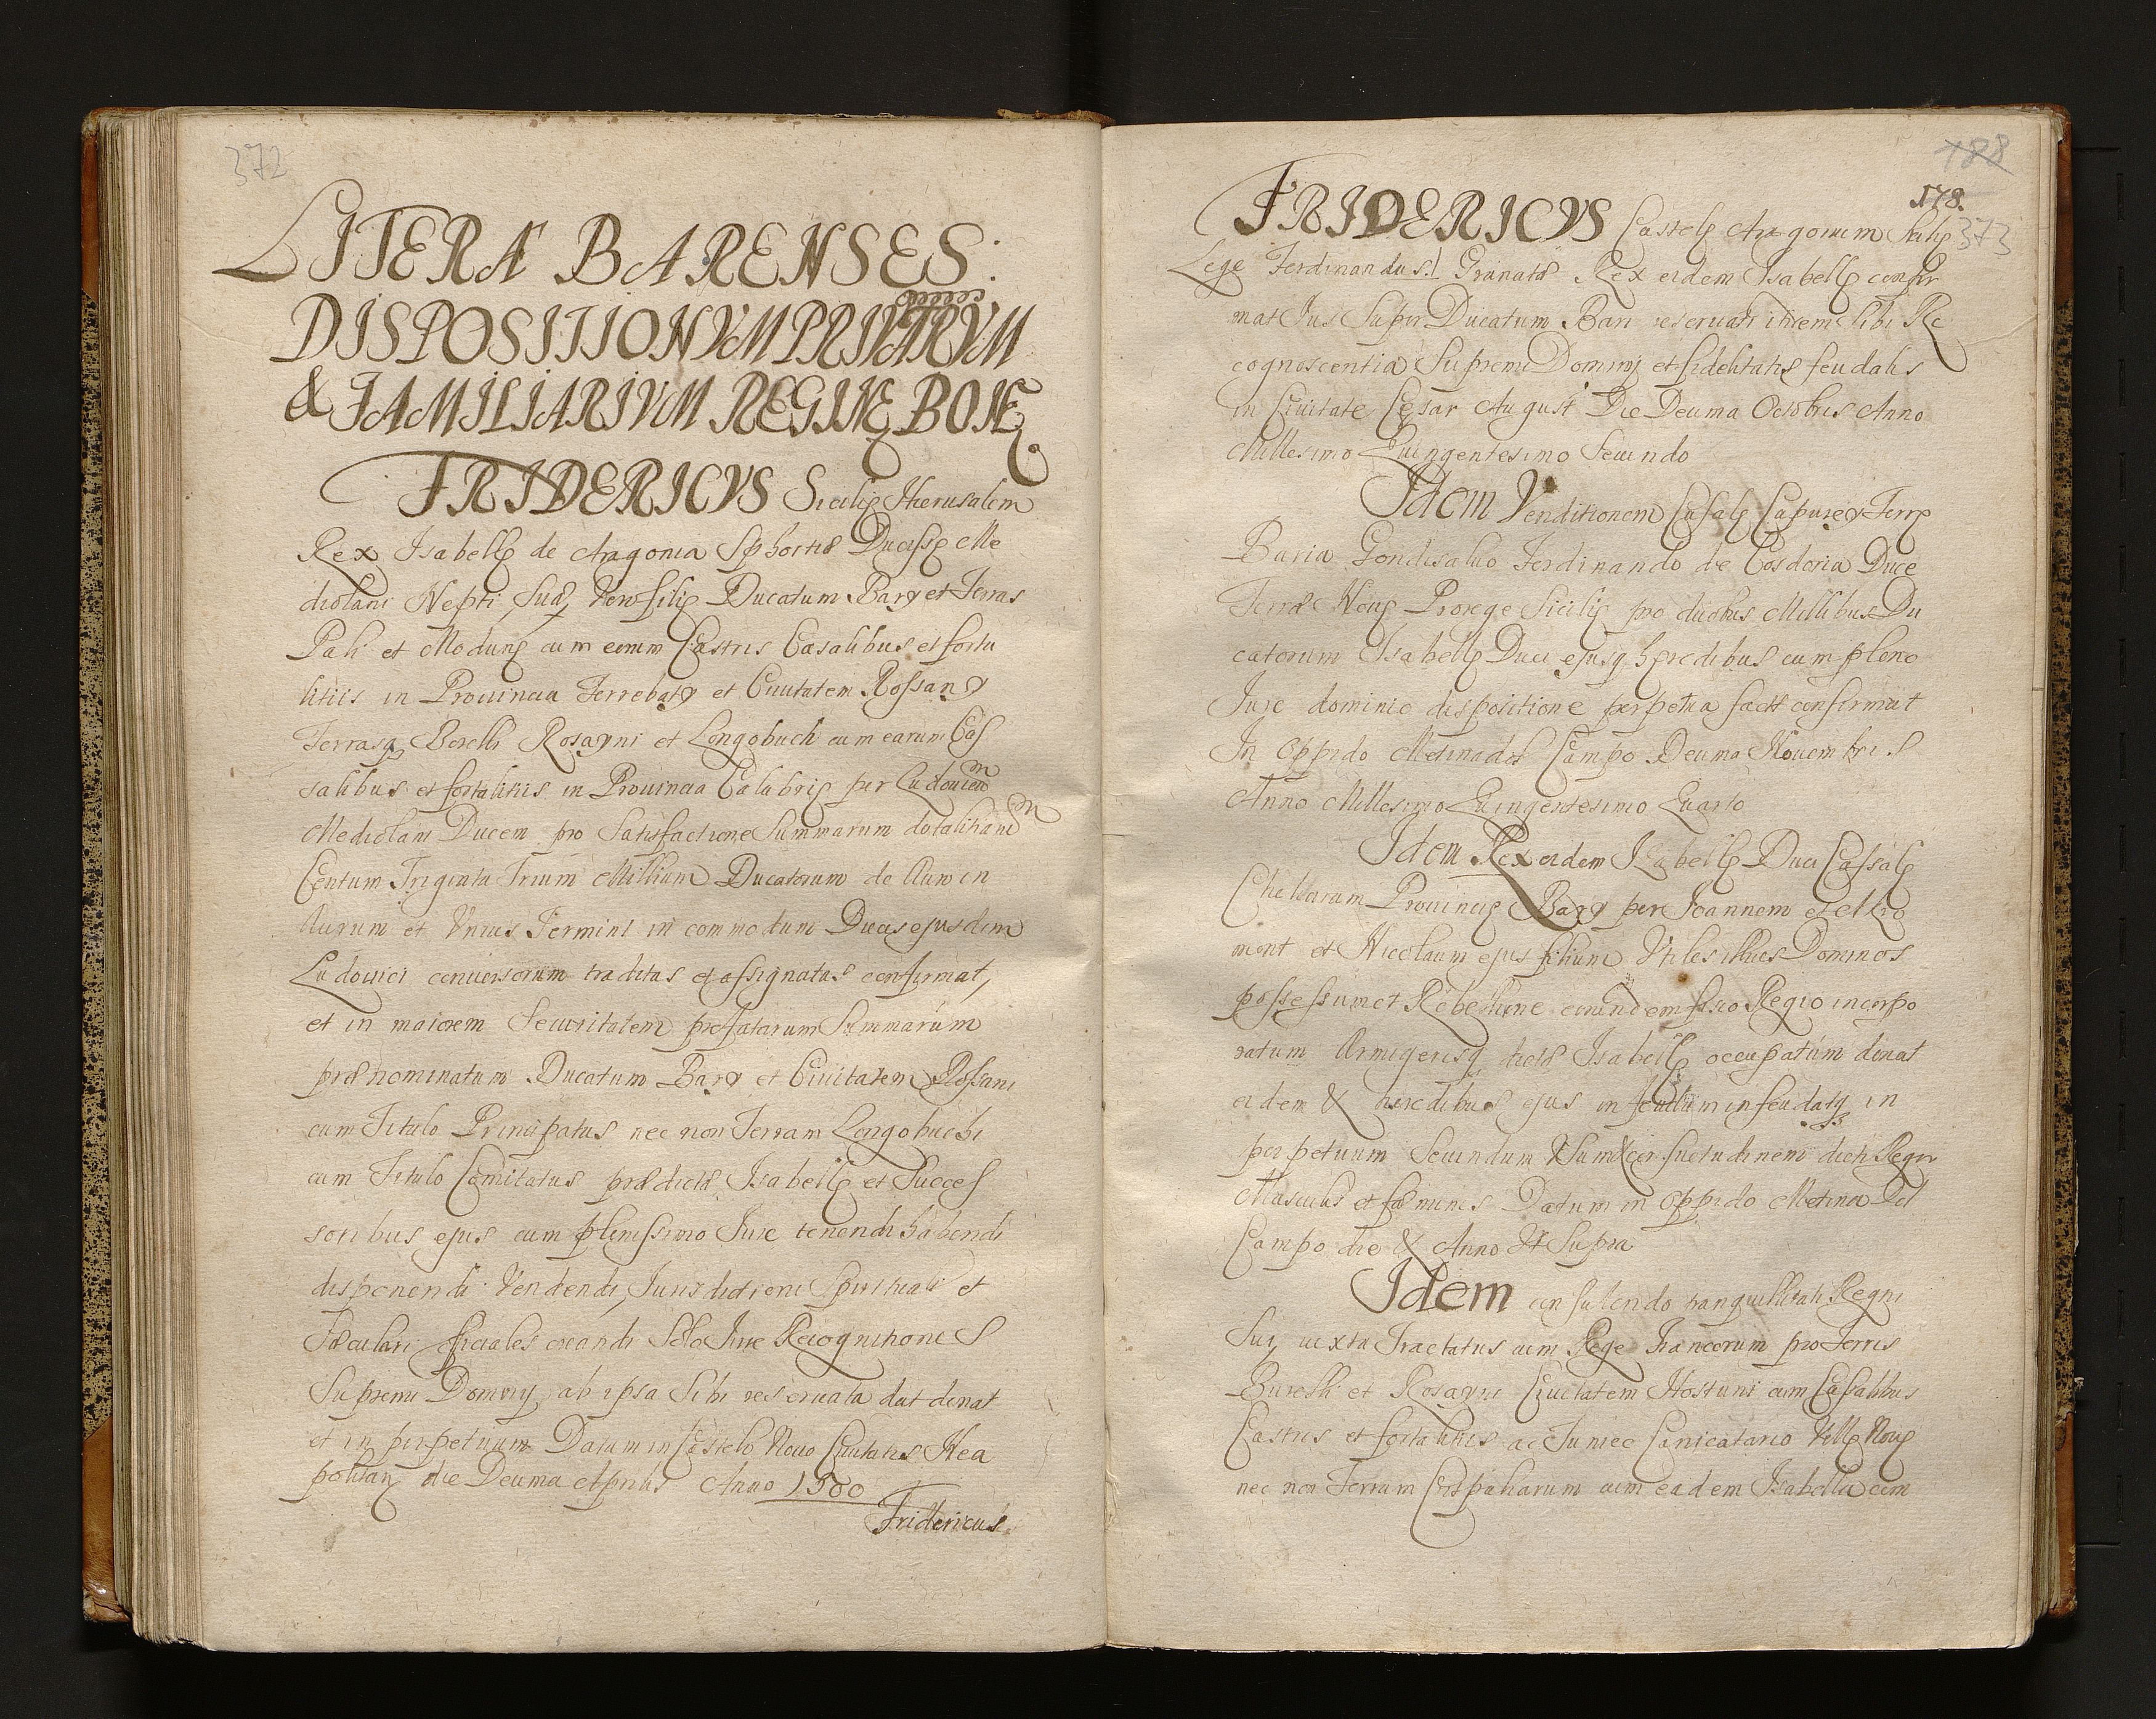 372
LITERÆ BARENSES:
DISPOSITIONVM PRIVATARVM
& FAMILIARIVM REGINĘ BONĘ
FRIDERICVS Sicilię Hierusalem
Rex Isabellę de Aragonia Sphortiæ Ducissę Me
diolani Nepti suæ, Ducatum Bary et Terras
Pali et Modunę cum eorum Castris Casalibus et fortu
litiis in Prouincia Terrebary et Ciuitatem Rossany
Terrasq Borelli Rosayni et Longobuch cum earum Cas
salibus et fortalitiis in Prouincia Calabrię per Ludouicum
Mediolani Ducem pro Satisfactione Summarum dotalitiam
Centum Triginta Trium Millium Ducatorum de Auro in
Aurum et Vnius Termini in commodum Ducis ejusdem
Ludouici conuersorum traditas et assignatas confirmat,
et in maiorem Securitatem prefatarum Summarum
prænominatum Ducatum Bary et Ciuitatem Rossani
cum Titulo Principatus nec non Terram Longobuchi
cum Titulo Comitatus prædictæ Isabellę et Succes
soribus ejus cum plenissimo Iure tenendi habendi
disponendi Vendendi, Iurisdictioni Spirituali et
Sæculari ficiales creandi Solo Iure Recognitionis
Supremi Dominij ab ipsa Sibi reseruata dat donat
et in perpetuum Datum in Castelo Nouo Ciuitatis Nea
politanę die Decima Aprilis Anno 1500
Fridericus.
188
178.
373
FRIDERICVS Castelę Aragonum Sicilię
Lege Ferdinandus. Granatæ Rex eidem Isabellę confir
mat Ius Super Ducatum Bari reseruati Sibi Re
cognoscentia Supremi Dominij et fidelitatis feudalis
in Ciuitate Cęsar August Die Decima Octobris Anno
Millesimo Quingentesimo Secundo
Idem Venditionem Casalę Capurey Terrę
Baria Gondisaluo Ferdinando de Cosdoria Duce
Terræ Nouę Prorege Sicilię pro duobus Millibus Du
catorum Isabellę Duci ejusq hęredibus cum pleno
Iure dominio dispositione perpetua factæ confirmat
In Oppido Metinadel Campo Decima Nouembris
Anno Millesimo Quingentesimo Quarto
Idem Rex eidem Isabellę Duci Cassalę
Chellaram Prouincię Bary per Joannem
mont et Nicolaum ejus filium Vtiles illius Dominos
possessum et Rebellione eorundem fisco Regio incorpo
ratum Armigerisq dictæ Isabellę occupatum donat
eidem & hæredibus ejus in feudum infeudatq in
perpetuum Secundum Vsum & consuetudinem dicti Regni
Masculis et fæminis Datum in Oppido Metina Del
Campo die & Anno Vt Supra
Idem consulendo tranquillitati Regni
Sui, iuxta Tractatus cum Rege Francorum pro Terris
Burelli et Rosayni Ciuitatem Hostuni cum Casalibus
Castris et fortalitiis ac Iuniec Canicatario Villę Nouę
nec non Terram Crispaharum cum eadem Isabella cum